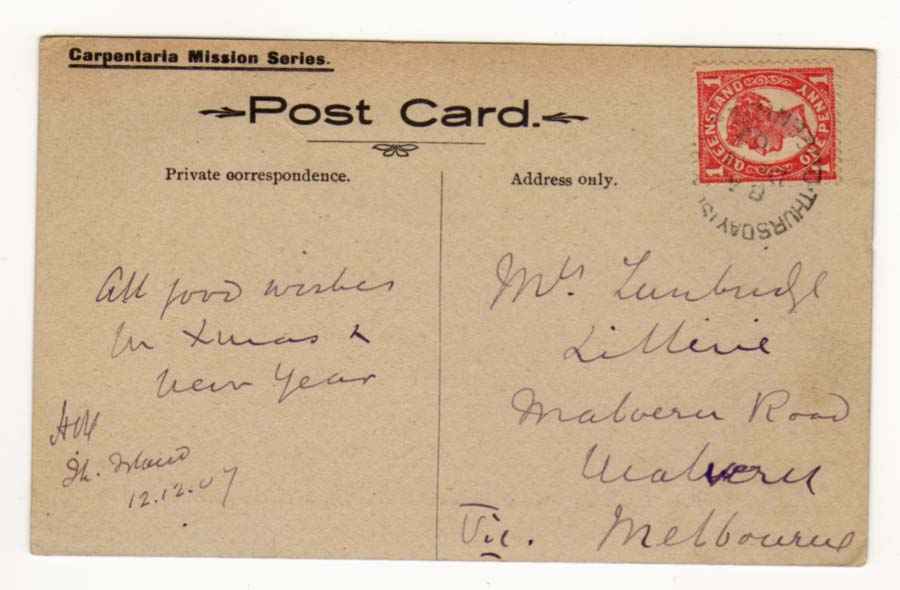 Carpentaria Mission Series.
Post Card.
Private correspondence.
Address only.
QUEENSLAND
ONE PENNY
1
1
1
THURSDAY ISL
All good wishes
for Xmas &
New Year
Th. Island
12.12.07
Mrs. Tunbridge
Malvern Road
Malvern
Vic. Melbourne